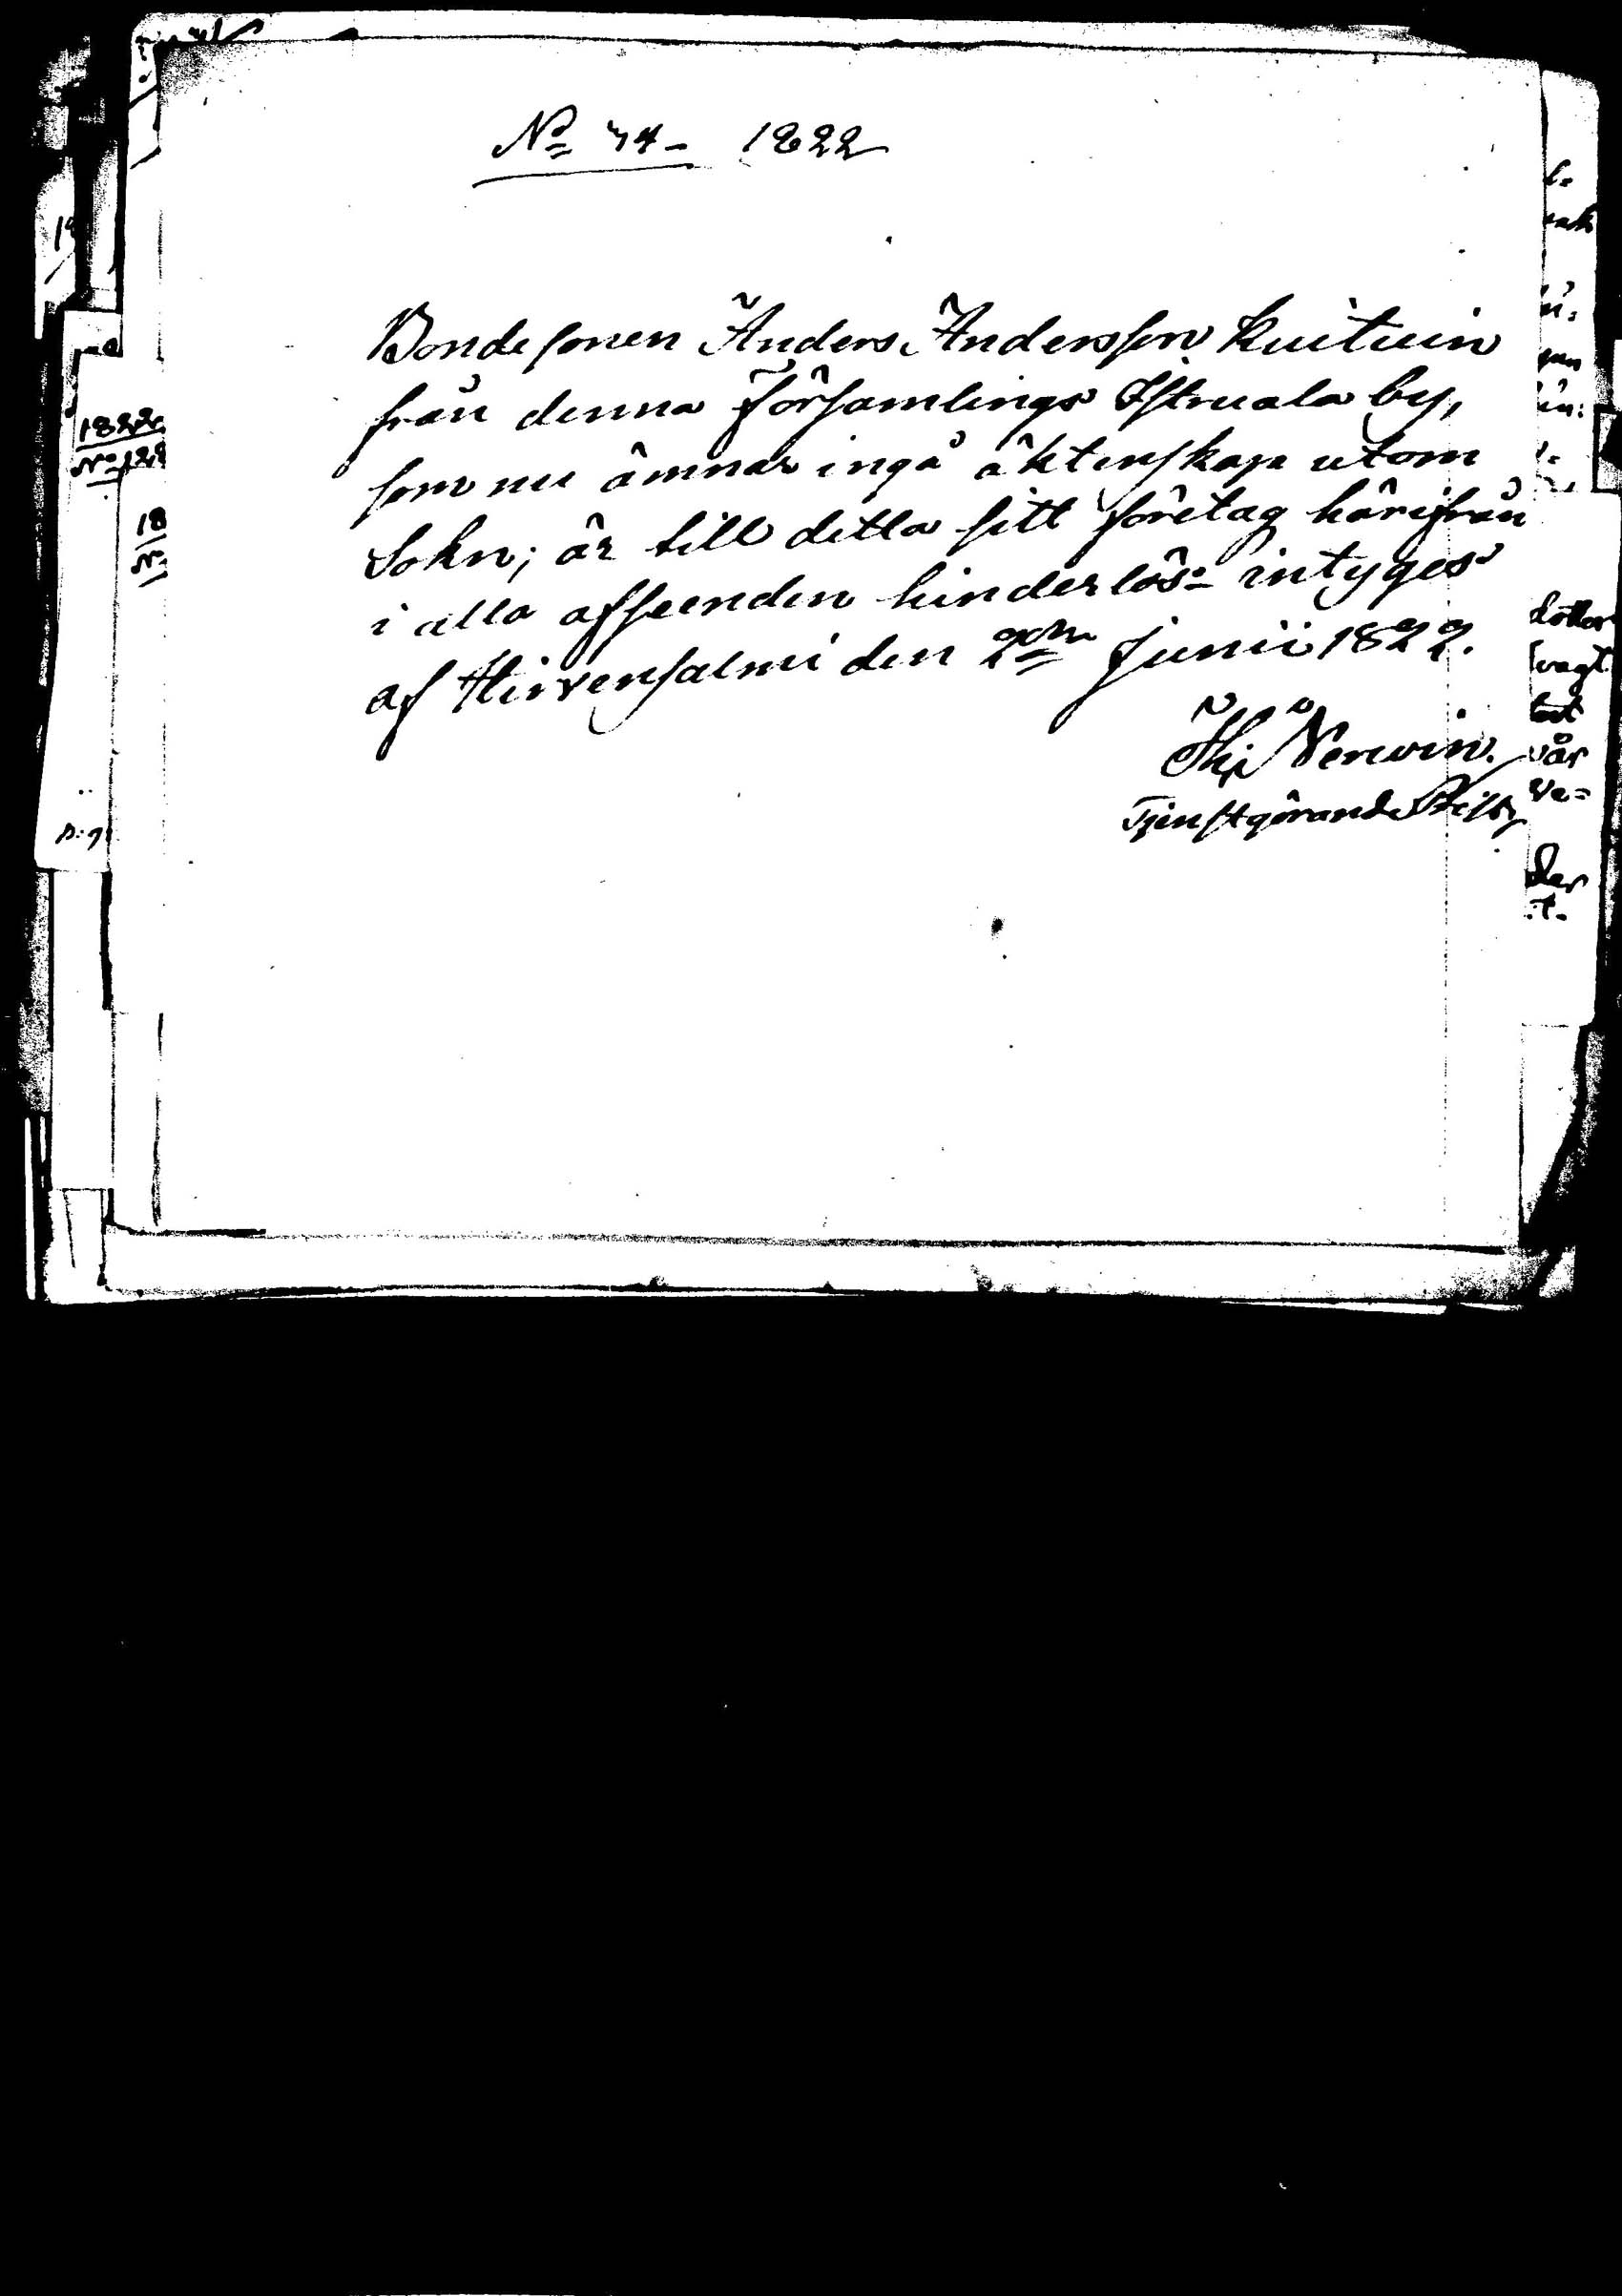 No 74- 1822
Bondesonen Anders Andersson Kuituin
från denna Församlings Istruala by,
som nu ämnar ingå äktenskap utom
Sokn; är till detta sitt företag härifrån
i alla afseenden hinderlös:- intyges
af Hirvensalmi den 2dra Junii 1822.
Nerwin.
Tjenstgörande
1822
No 128
18
dotter
vagt
vår
der